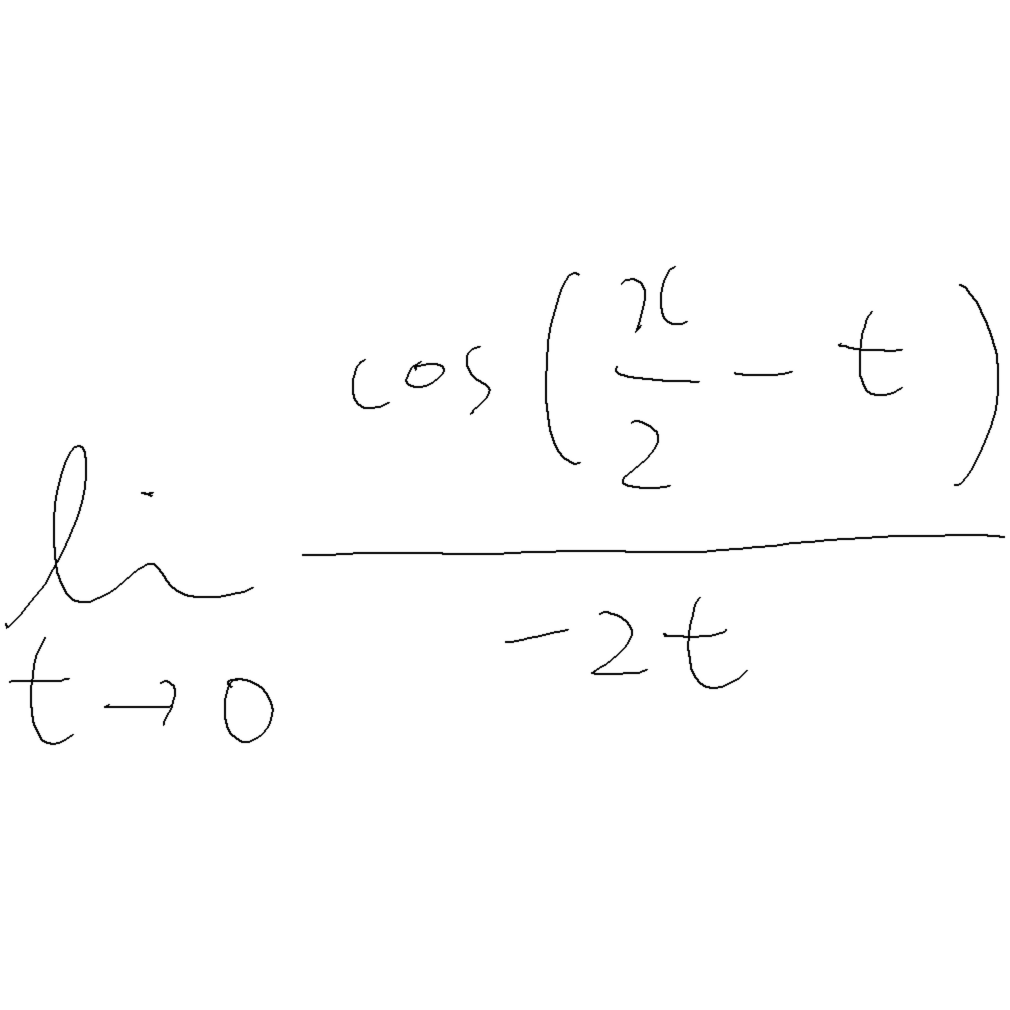 lim_{t→0} \frac{cos(\frac{π}{2} - t)}{-2t}